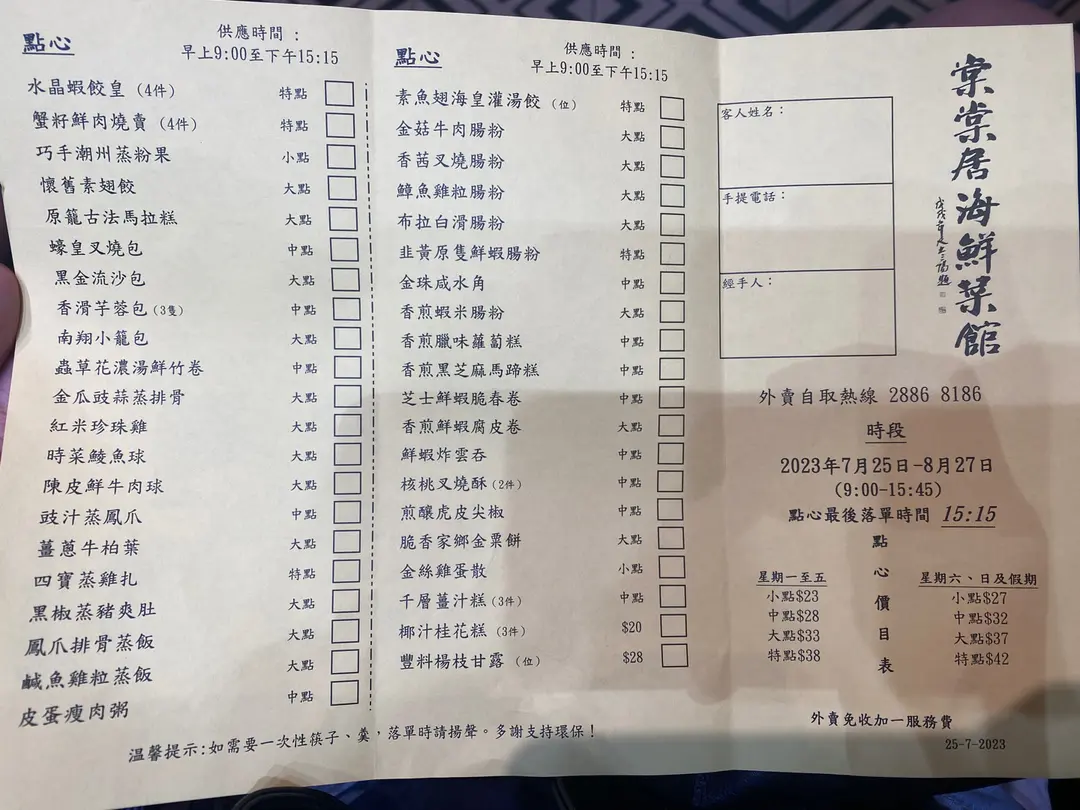 點心
供應時間：
早上9:00至下午15:15
水晶蝦餃皇 (4件) 特點
蟹籽鮮肉燒賣 (4件) 特點
巧手潮州蒸粉果 小點
懷舊素翅餃 大點
原籠古法馬拉糕 大點
蠔皇叉燒包 中點
黑金流沙包 大點
香滑芋蓉包(3隻) 中點
南翔小籠包 大點
蟲草花濃湯鮮竹卷 中點
金瓜豉蒜蒸排骨 大點
紅米珍珠雞 大點
時菜鯪魚球 大點
陳皮鮮牛肉球 大點
豉汁蒸鳳爪 中點
薑蔥牛柏葉 大點
四寶蒸雞扎 特點
黑椒蒸豬爽肚 大點
鳳爪排骨蒸飯 大點
鹹魚雞粒蒸飯 大點
皮蛋瘦肉粥 中點
點心
供應時間：
早上9:00至下午15:15
素魚翅海皇灌湯餃 (位) 特點
金菇牛肉腸粉 大點
香茜叉燒腸粉 大點
鱆魚雞粒腸粉 大點
布拉白滑腸粉 大點
韭黃原隻鮮蝦腸粉 特點
金珠咸水角 中點
香煎蝦米腸粉 大點
香煎臘味蘿蔔糕 中點
香煎黑芝麻馬蹄糕 中點
芝士鮮蝦脆春卷 中點
香煎鮮蝦腐皮卷 大點
鮮蝦炸雲吞 中點
核桃叉燒酥(2件) 中點
煎釀虎皮尖椒 中點
脆香家鄉金粟餅 大點
金絲雞蛋散 小點
千層薑汁糕(3件) 中點
椰汁桂花糕 (3件) $20
豐料楊枝甘露 (位) $28
溫馨提示:如需要一次性筷子、羹，落單時請揚聲。多謝支持環保！
客人姓名：
手提電話：
經手人：
棠棠居海鮮菜館
外賣自取熱線 2886 8186
時段
2023年7月25日-8月27日
(9:00-15:45)
點心最後落單時間 15:15
點心價目表
星期一至五
小點$23
中點$28
大點$33
特點$38
星期六、日及假期
小點$27
中點$32
大點$37
特點$42
外賣免收加一服務費
25-7-2023